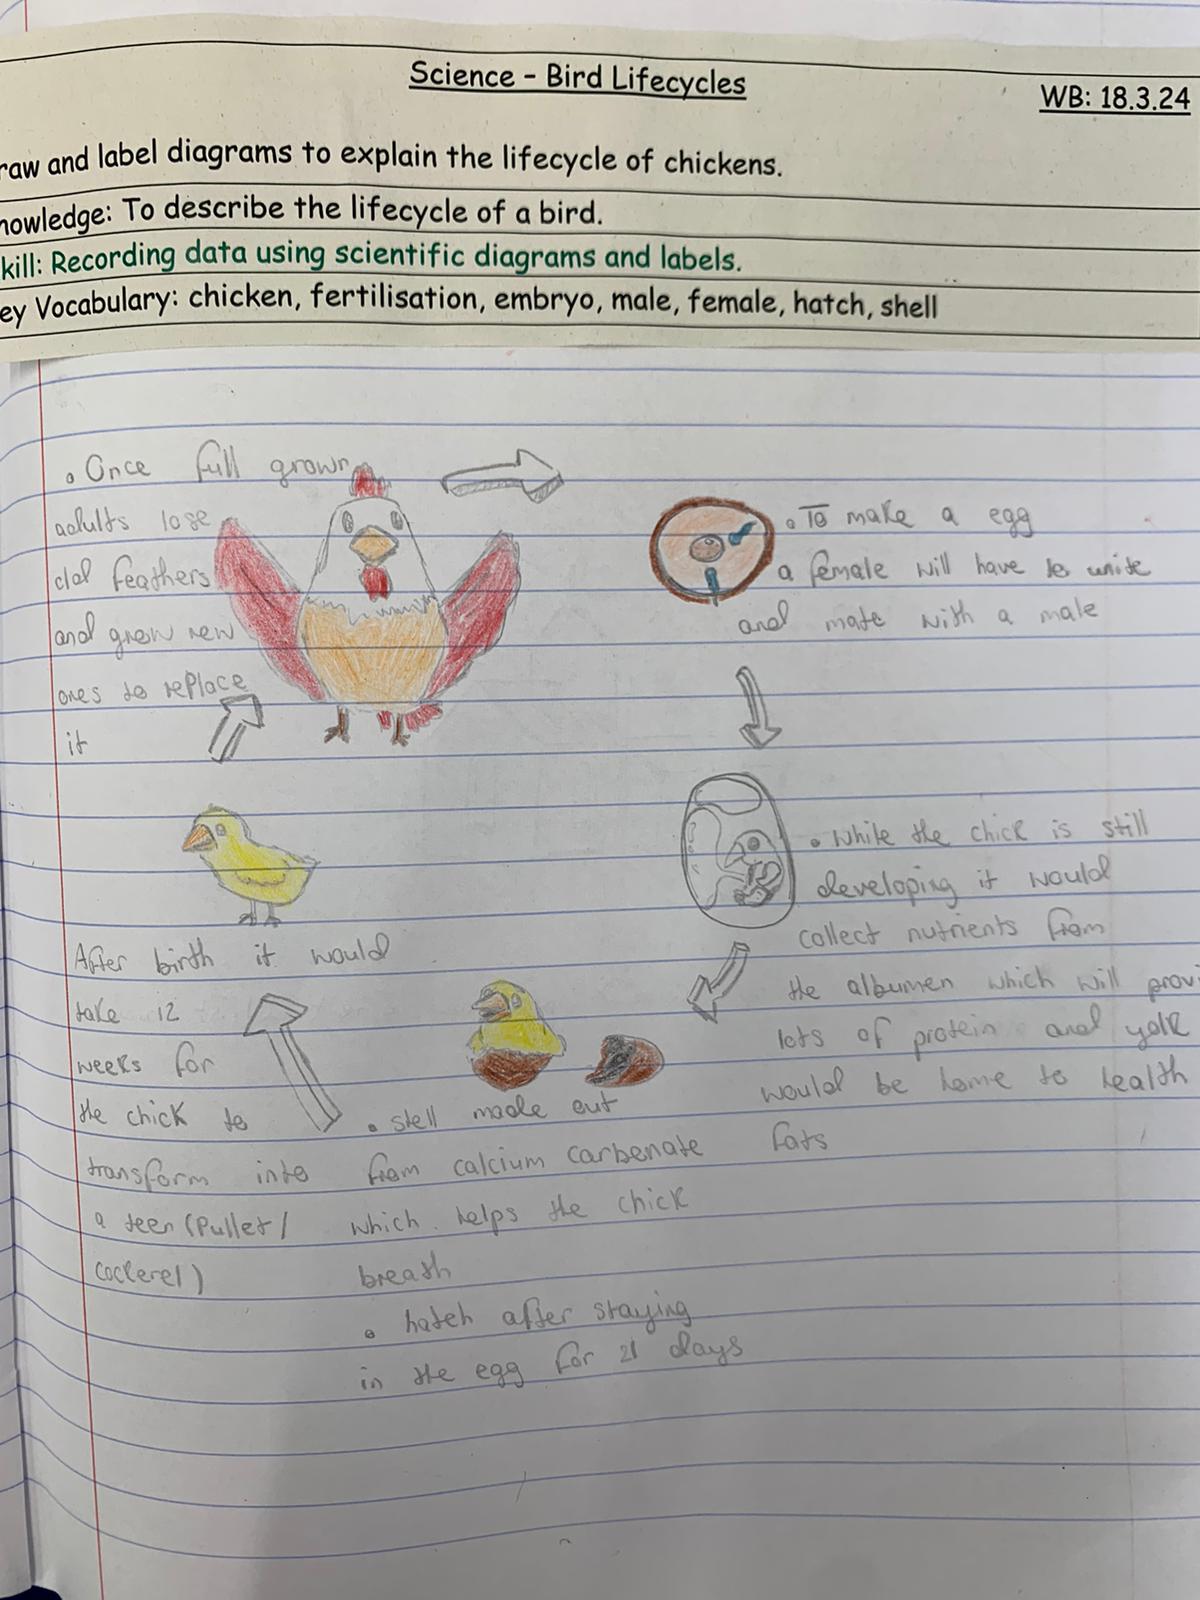 Science - Bird Lifecycles
WB: 18.3.24
raw and label diagrams to explain the lifecycle of chickens.
nowledge: To describe the lifecycle of a bird.
kill: Recording data using scientific diagrams and labels.
ey Vocabulary: chicken, fertilisation, embryo, male, female, hatch, shell
• Once full grown
adults lose
old feathers
and grow new
ones to replace
it
• To make a egg
a female will have to unite
and mate with a male
• While the chick is still
developing it would
collect nutrients from
the albumen which will provi
lots of protein and yolk
would be home to health
fats
• shell made out
from calcium carbonate
which helps the chick
breath
• hatch after staying
in the egg for 21 days
After birth it would
take 12
weeks for
the chick to
transform into
a teen (Pullet/
cockerel)